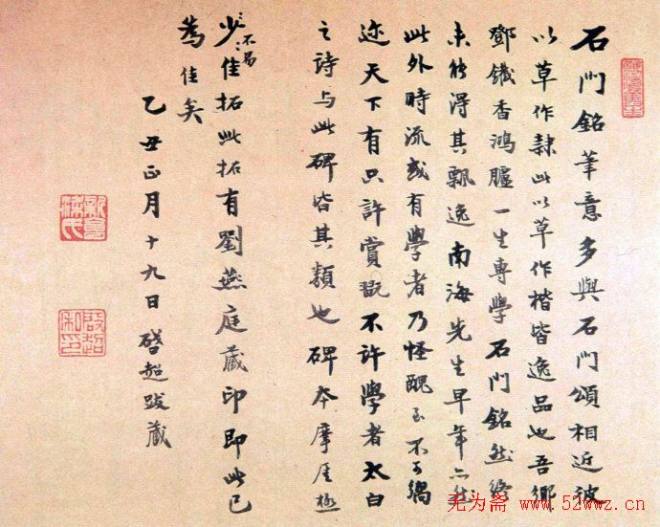 石門銘筆意多與石門頌相近彼
以草作隸此以草作楷皆逸品也吾鄉
鄧鐵香鴻臚一生專學石門銘然終
未能得其飄逸南海先生早年亦然
此外時流或有學者乃怪醜至不可嚮
迩天下有只許賞翫不許學者太白
之詩與此碑皆其類也碑本摩崖極
不易
少佳拓此拓有劉燕庭藏印即此已
為佳矣
乙丑正月十九日啓超跋藏
新會梁氏
无为斋 www.52wwz.cn